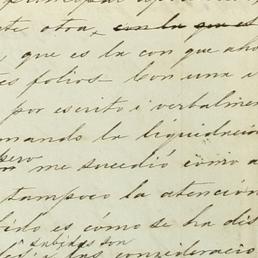 te otra, con la que est
, que es la con que aho
es folios. Con una i
por escrito i verbalmen
mando la liquidació
pero
me sucedió como a
tampoco la atención
bido es cómo se ha dis
subidas son
las consideracio